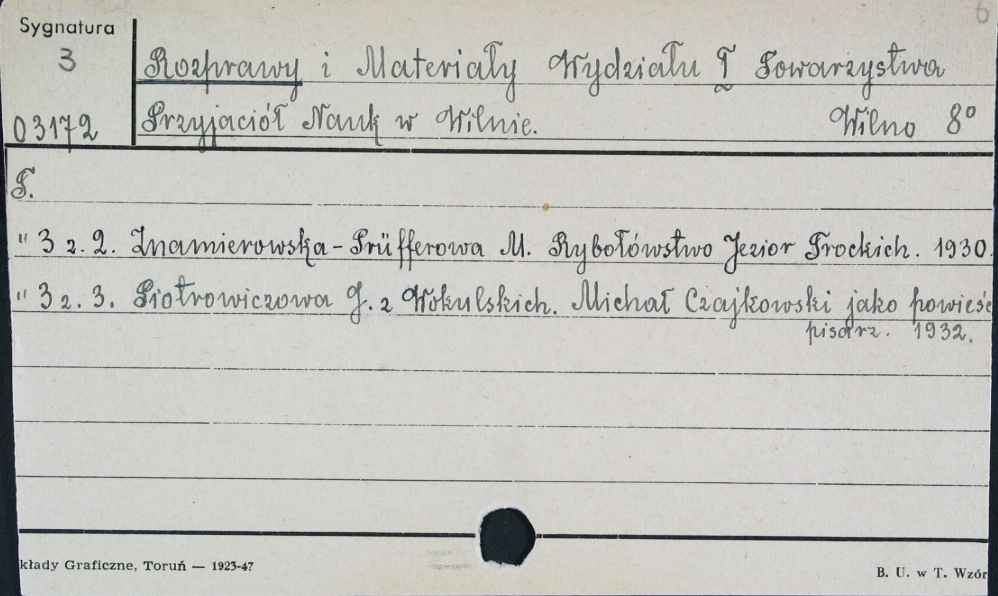 6
Sygnatura
3
03172
Rozprawy i Materiały Wydziału I Towarzystwa
Przyjaciół Nauk w Wilnie. Wilno 8°
T.
" 3 z. 2. Znamierowska-Prüfferowa M. Rybołówstwo Jezior Trockich. 1930.
" 3 z. 3. Piotrowiczowa J. z Wokulskich. Michał Czajkowski jako powieście
pisarz. 1932.
kłady Graficzne, Toruń — 1923-47
B. U. w T. Wzór